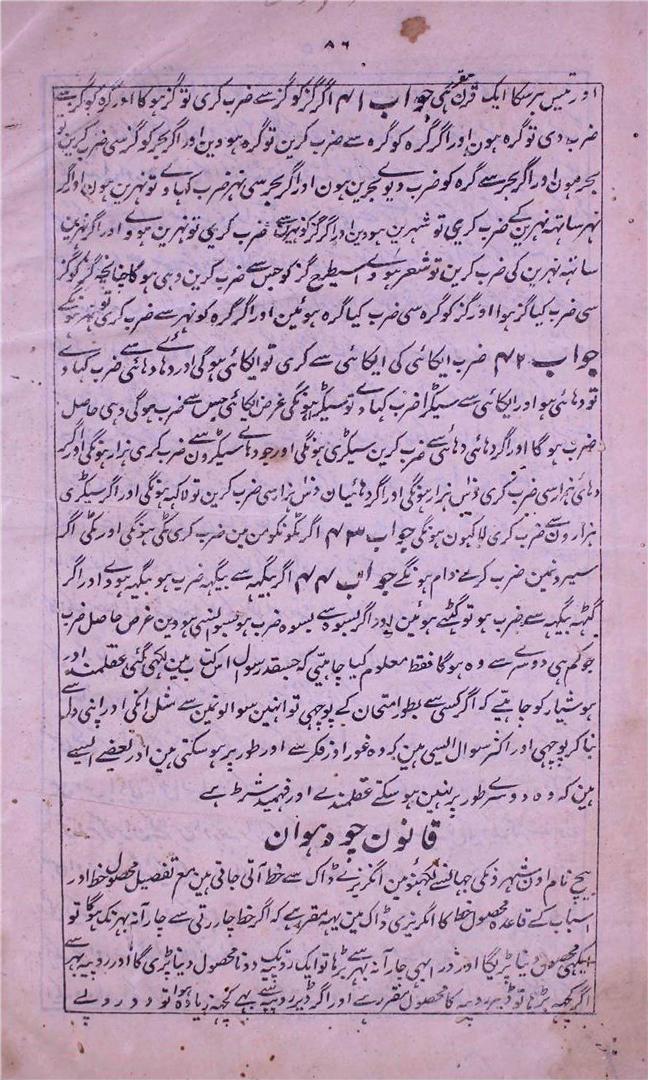 ۸۶
اور تیس برسکا ایک قرن جواب ۴۱ اگر گز کو گز سے ضرب کری تو گز ہوگا اور گرہ کو گرہ سے
ضرب دی تو گرہ ہون اور اگر گرہ کو گرہ سے ضرب کرین تو گرہ ہووین اور اگر بجر کو گز سی ضرب کرین تو
بجر ہون اور اگر بجر سے گرہ کو ضرب دیوے بجرین ہون اور اگر بجر سی نہر ضرب کہاوے تو نہرین ہون اور اگر
نہر ساتہہ نہرین کے ضرب کری تو شہرین ہووین اور اگر گز کو نہر سے ضرب کری تو نہرین ہووے اور اگر نہرین
ساتہہ نہرین کی ضرب کرین تو شعر ہووے اسیطرح گز کو جس سے ضرب کرین وہی ہوگا چنانچہ گز کو گز
سی ضرب کیا گز ہوا اور گز کو گرہ سی ضرب کیا گرہ ہوئین اور اگر گرہ کو نہر سے ضرب کری تو نہر ہونگے
جواب ۴۲ ضرب ایکائی کی ایکائی سے کری تو ایکائی ہوگی اور دہائی سے ضرب کہاوے
تو دہائی ہو اور ایکائی سے سیکڑا ضرب کہاوے تو سیکڑہ ہونگی غرض ایکائی جس سے ضرب ہوگی وہی حاصل
ضرب ہوگا اور اگر دہائی دہائی سے ضرب کرین سیکڑی ہونگی اور جو دہائے سیکڑون سے ضرب کری ہزار ہونگی اور اگر
دہائی ہزار سی ضرب کری دس ہزار ہونگی اور اگر دہائیان دس ہزار سی ضرب کرین تو لاکہہ ہونگی اور اگر سیکڑی
ہزارون سے ضرب کری لاکہون ہونگی جواب ۴۳ اگر ٹکونکو من مین ضرب کری ٹکی ہونگی اور ٹکی اگر
سیر ونمین ضرب کرے دام ہونگے جواب ۴۴ اگر بیگہہ سے بیگہہ ضرب ہو بیگہہ ہووے اور اگر
گٹہہ بیگہہ سے ضرب ہو تو گٹہے ہوئین اور اگر بسوہ سے بسوہ ضرب ہو بسوانسی ہووین غرض حاصل ضرب
جو کم ہی دوسرے سے وہ ہوگا فقط معلوم کیا چاہیے کہ جسقدر سوال اس کتاب مین لکہی گئی عقلمند اور
ہوشیار کو چاہیے کہ اگر کسی سے بطور امتحان کے پوچہی تو انہین سوالونمین سے مثل انکی اور اپنی دل سے
بنا کر پوچہی اور اکثر سوال ایسی ہین کہ وہ غور اور فکر سے اور طور پر ہو سکتی ہین اور بعضے ایسے
ہین کہ وہ دوسرے طور پر نہین ہو سکتے عقلمندے اور فہمید شرط ہے
قانون چودہوان
بیچ نام اون شہرونکی جہانسے لکہنؤ مین انگریزے ڈاک سے خط آتی جاتی ہین مع تفصیل محصول خط اور
اسباب کے قاعدہ محصول خط کا انگریزی ڈاک مین یہہ مقرر ہے کہ اگر خط چار رتی سے چار آنہ بہر تک ہوگا تو
ایکہی محصول دینا پڑیگا اور ذرا بہی چار آنہ بہر سے بڑہا تو ایک روپیہ تک دونا محصول دینا پڑی گا اور روپیہ بہر سے
اگر کچہہ بڑہا تو ڈیڑہ روپیہ کا محصول مقرر ہے اور اگر ڈیڑہ روپیے سے بہی کچہہ زیادہ ہوا تو دو روپیے